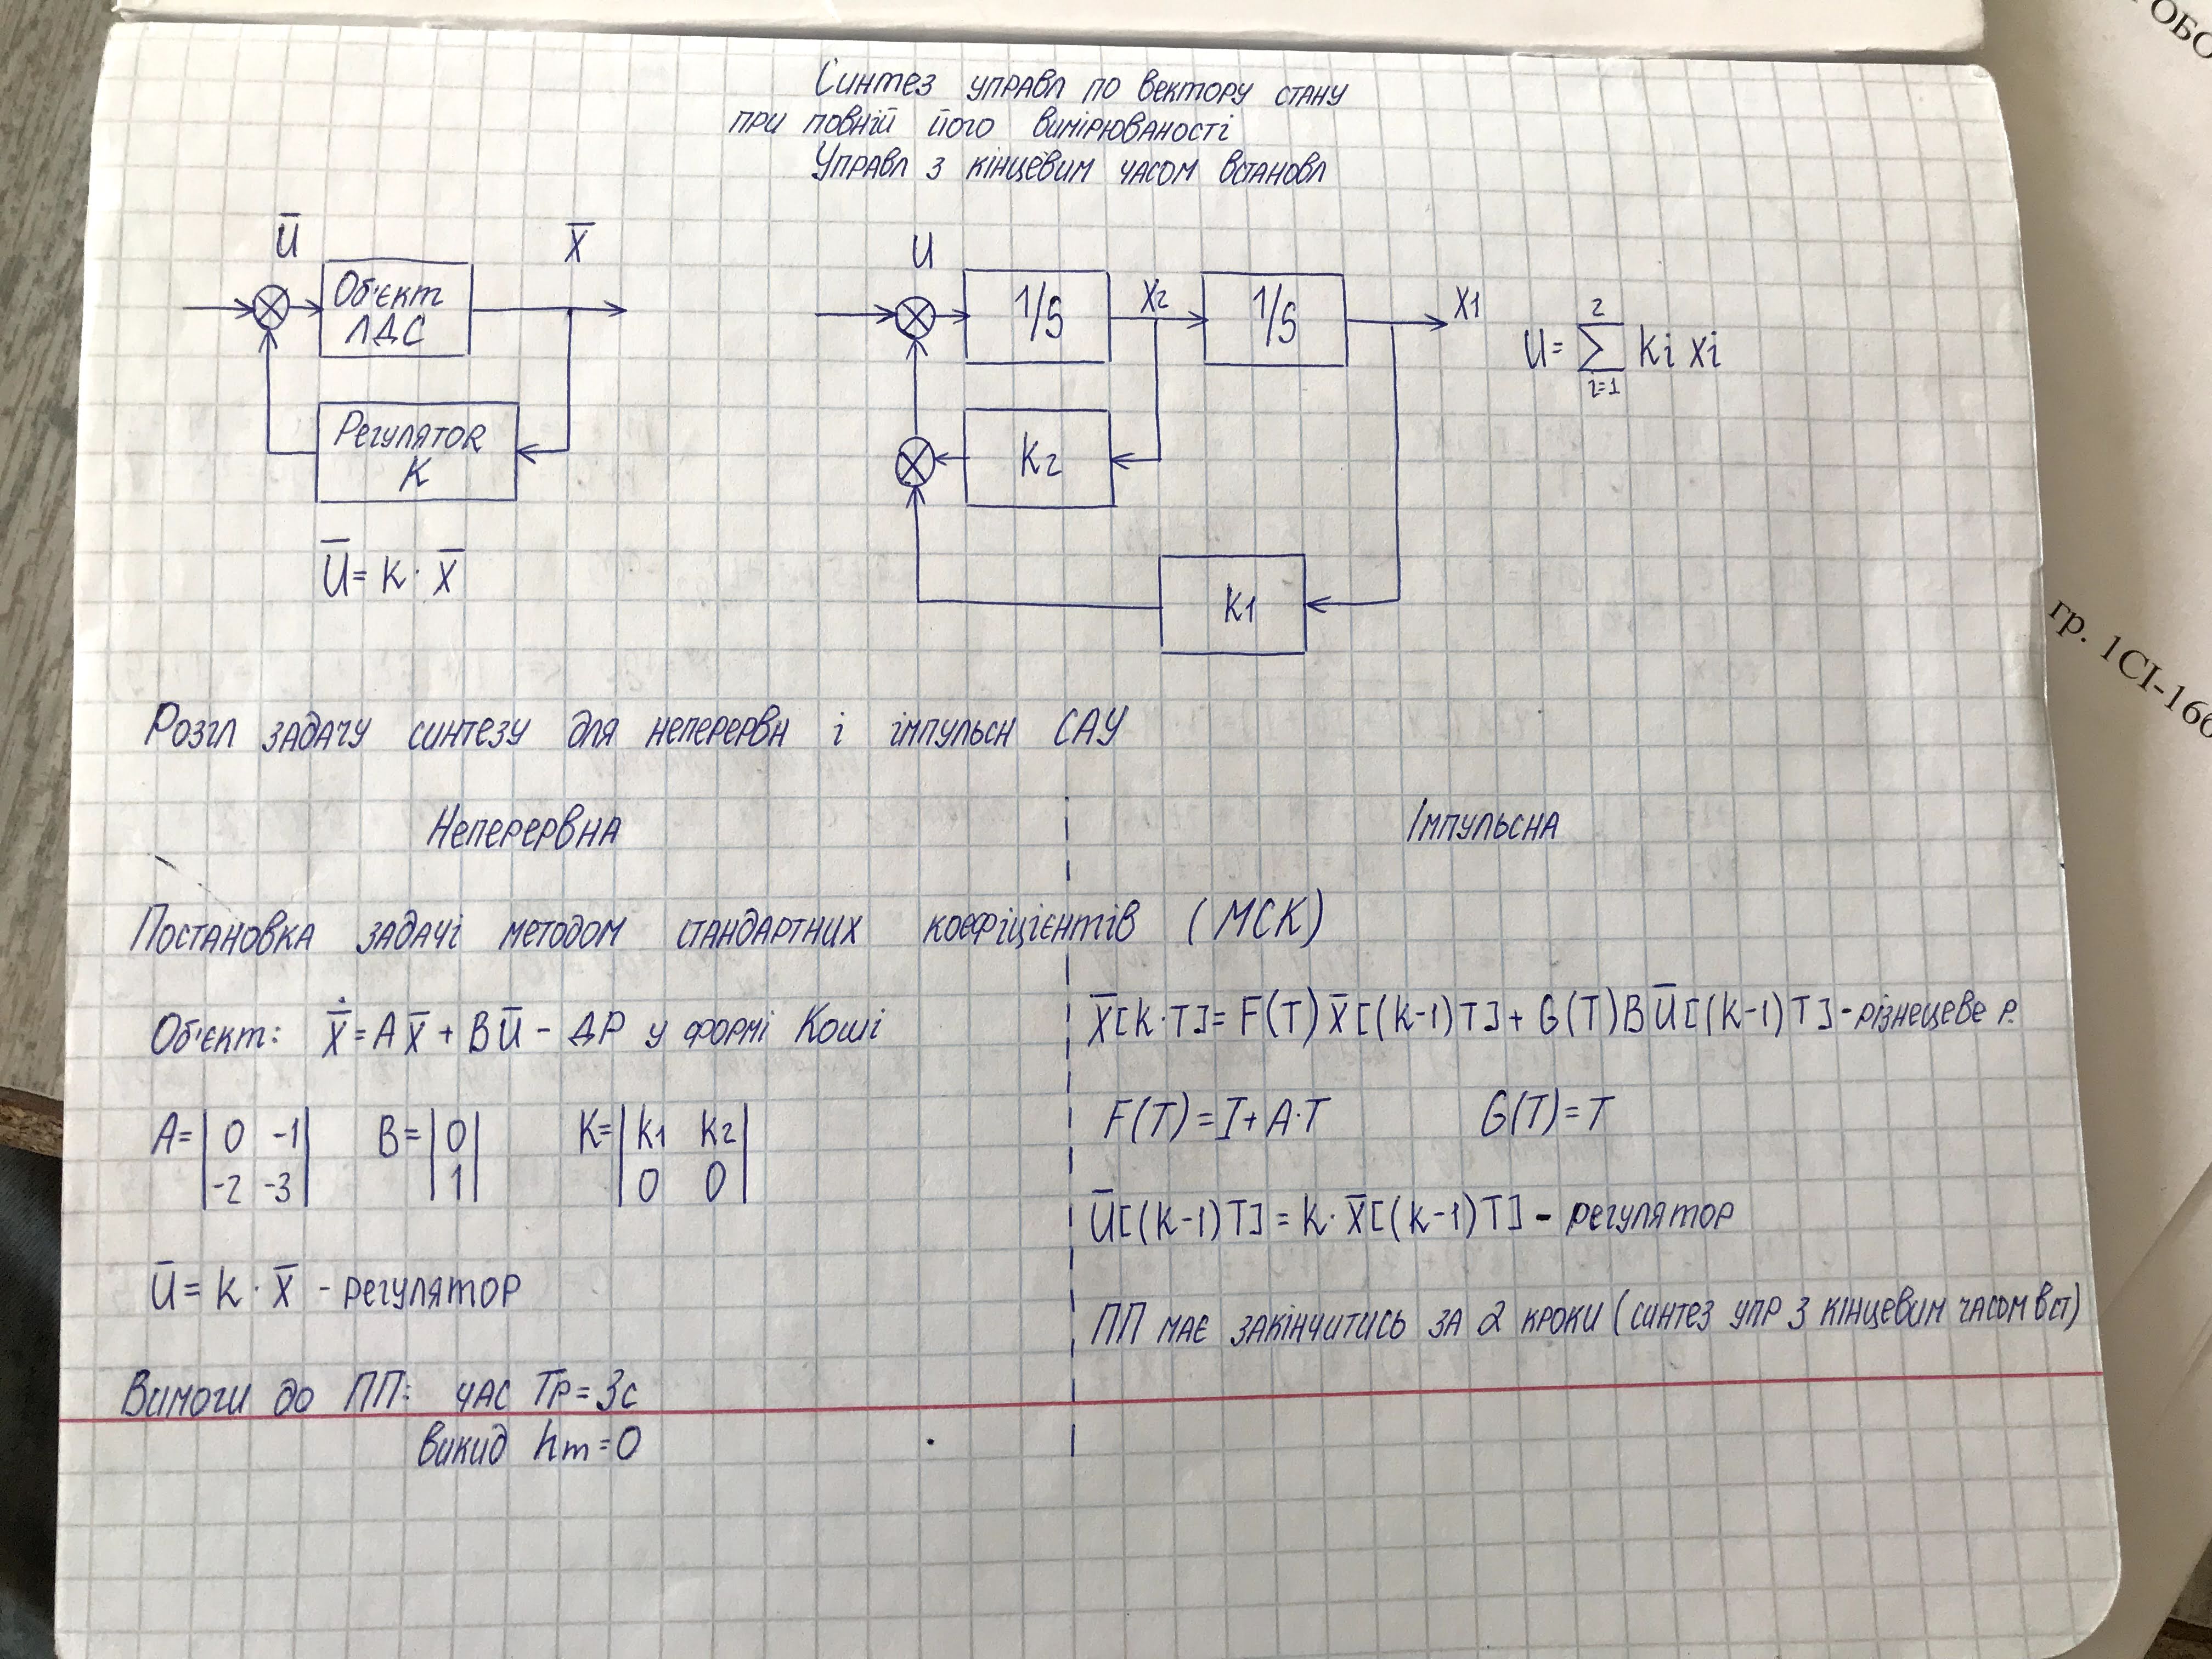 Синтез управл по вектору стану
при повній його вимірюваності
Управл з кінцевим часом встановл
Ū
X̄
Об'єкт
ЛДС
Регулятор
K
Ū = K · X̄
U
1/S
X2
1/S
X1
K2
K1
U = Σ ki xi
2
i=1
Розгл задачу синтезу для неперервн і імпульсн САУ
Неперервна
Імпульсна
Постановка задачі методом стандартних коефіцієнтів (МСК)
Об'єкт: Ẋ̄ = A X̄ + B Ū - ДР у формі Коші
A = | 0 -1 |
| -2 -3 |
B = | 0 |
| 1 |
K = | k1 k2 |
| 0 0 |
Ū = K · X̄ - регулятор
Вимоги до ПП: час Tр = 3с
викид hm = 0
X̄[K·T] = F(T) X̄[(k-1)T] + G(T) B Ū[(k-1)T] - різнецеве р.
F(T) = I + A·T
G(T) = T
Ū[(k-1)T] = K · X̄[(k-1)T] - регулятор
ПП має закінчитись за 2 кроки (синтез упр з кінцевим часом вст)
гр. 1СІ-16б